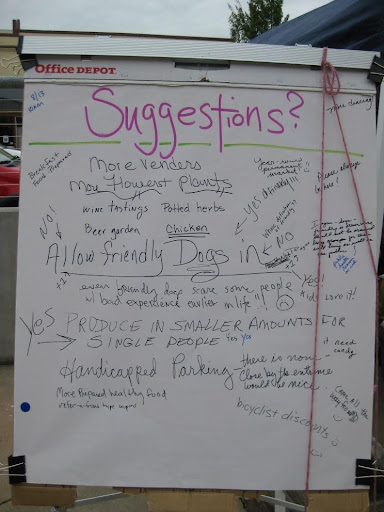 Office DEPOT
8/13
10am
Suggestions?
more dancing!
Breakfast
Food Prepared
More Vendors
More Flowers + plants
Year-round
permanent
market!!
Please always
be here!
wine tastings Potted herbs
Beer garden Chicken
YES DEFINITELY!!!
NO!
NO
Allow friendly Dogs in
+2
even friendly dogs scare some people
w/ bad experience earlier in life"!
Yes!
Kids Love it!
Yes PRODUCE IN SMALLER AMOUNTS FOR
SINGLE PEOPLE yes yes
need
candy
Handicapped Parking - there is none -
Close by the entrance
would be nice.
More Prepared healthy food
bicyclist discounts